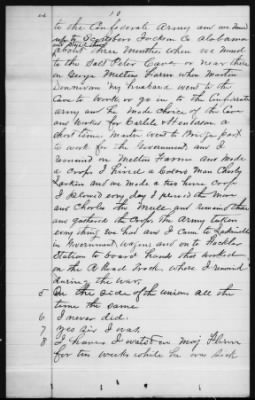 10
to the Confederate Army and we moved
up to Scottsboro Jackson Co Alabama
about three months when we moved
to the Salt Peter Cave or near there
on George Melting Farm when Martin
Donnivan my husband went to the
Cave to work, or go in to the Confederate
army and he made choice of the Cave
and worked for Carlile & Henderson a
short time. Martin went to Bridge port
to work for the Government, and I
remained on Farm and made
a Crop. I hired a Colored Man Charly
Larkin and we made a two horse Crop
I plowed every day I plowed the Mare
and Charles the Mule and
and gathered the Crop, the Army taken
every thing we had and I came to
in Government wagons and on to
Station to board hands that worked
on the Rail Road Track where I remained
during the war,
5 On the side of the union all the
time the same
6 I never did.
7 Yes Sir I was.
8 I have I waited on Maj Flinn
for ten weeks while he was sick